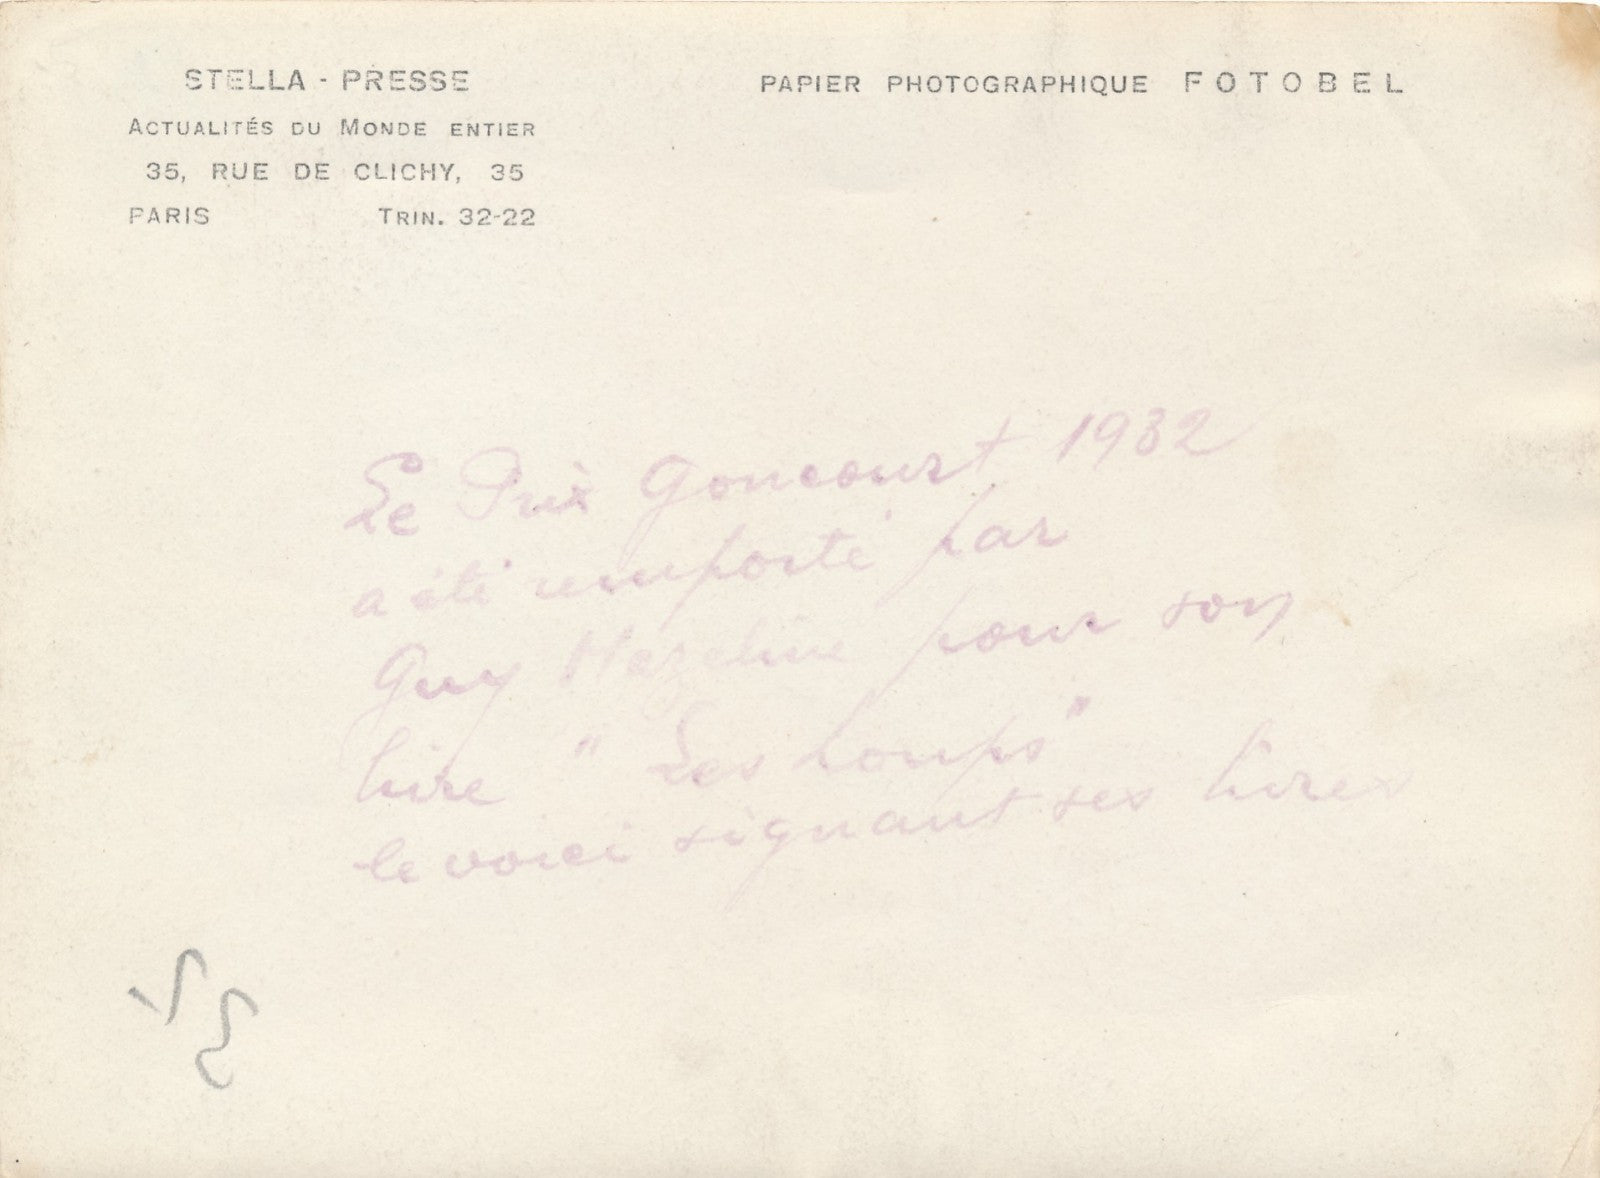 STELLA - PRESSE
ACTUALITÉS DU MONDE ENTIER
35, RUE DE CLICHY, 35
PARIS TRIN. 32-22
PAPIER PHOTOGRAPHIQUE FOTOBEL
Le Prix Goncourt 1932
a été remporté par
Guy Mazeline pour son
livre " Les Loups"
le voici signant ses livres